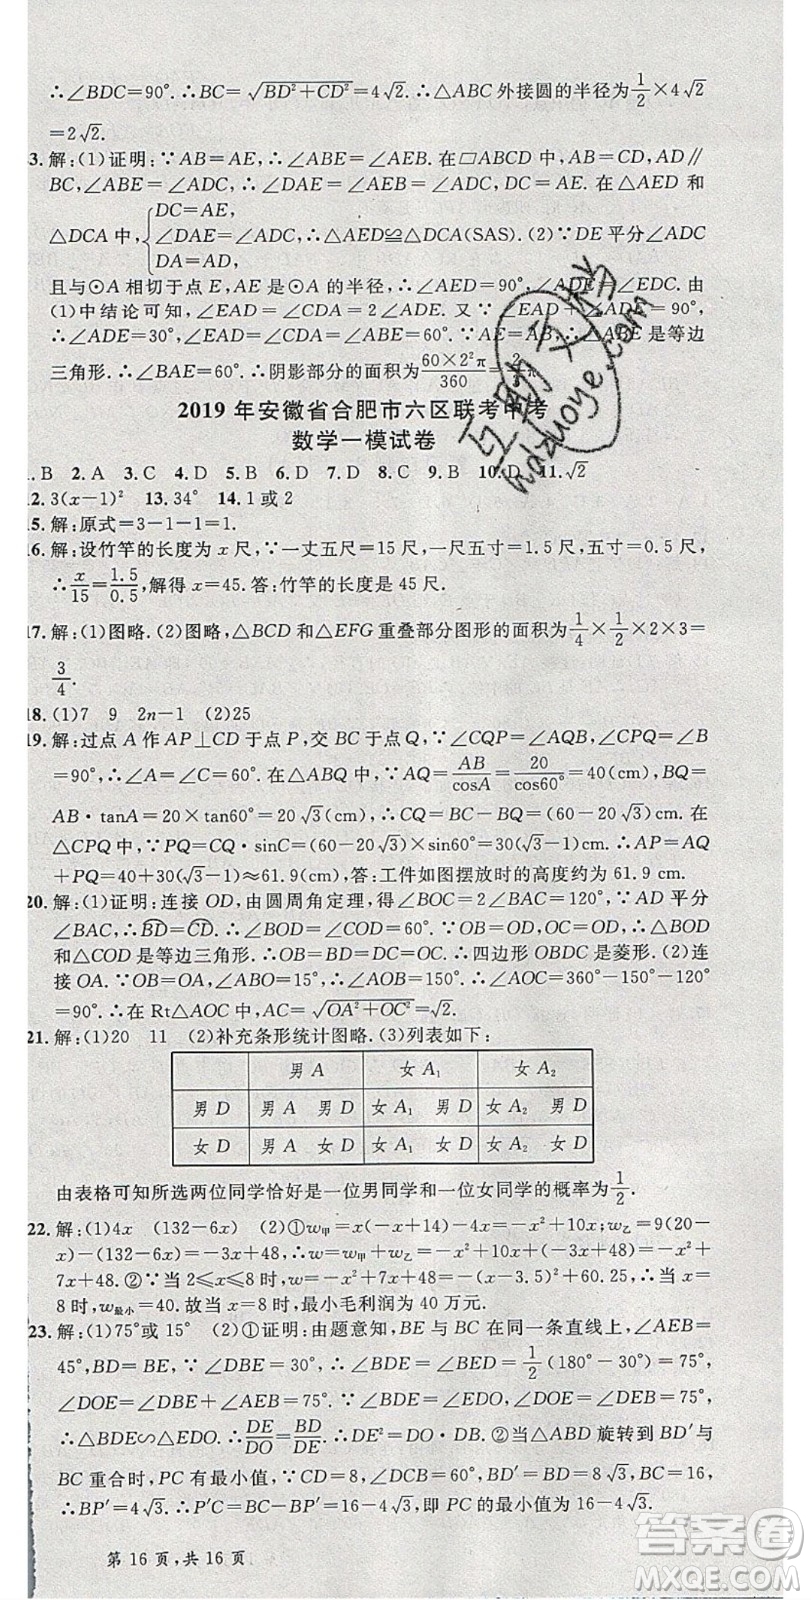 ∴∠BDC=90°.∴BC=√(BD²+CD²)=4√2.∴△ABC 外接圆的半径为1/2×4√2
=2√2.
3.解:(1)证明:∵AB=AE,∴∠ABE=∠AEB.在□ABCD中,AB=CD,AD∥
BC,∠ABE=∠ADC,∴∠DAE=∠AEB.∴∠DAE=∠ADC.在△AED和
△DCA中,{DC=AE, ∠DAE=∠ADC, DA=AD,∴△AED≌△DCA(SAS).(2)∵DE平分∠ADC
且与⊙A相切于点E,AE是⊙A的半径,∴∠AED=90°,∠ADE=∠EDC.由
(1)中结论可知,∠EAD=∠CDA=2∠ADE.又∵∠EAD+∠ADE=90°,
∴∠ADE=30°,∠EAD=60°.∴∠AEB=60°.∵AE=AB,∴△ABE是等边
三角形.∴∠BAE=60°.∴阴影部分的面积为60×2²π/360=2/3π.
2019年安徽省合肥市六区联考中考
数学一模试卷
1.B 2.A 3.C 4.C 5.D 6.D 7.D 8.A 9.B 10.D 11.√2
12.3(x-1)² 13.34° 14.1或2
15.解:原式=3-1-1=1.
16.解:设竹竿的长度为x尺,∵一丈五尺=15尺,一尺五寸=1.5尺,五寸=0.5尺,
∴x/15=1.5/0.5,解得x=45.答:竹竿的长度是45尺.
17.解:(1)图略.(2)图略,△BCD和△EFG重叠部分图形的面积为1/4×1/2×2×3=
3/4.
18.(1)7 9 2n-1 (2)25
19.解:过点A作AP⊥CD于点P,交BC于点Q,∵∠CQP=∠AQB,∠CPQ=∠B
=90°,∴∠A=∠C=60°.在△ABQ中,∵AQ=AB/cosA=20/cos60°=40(cm),BQ=
AB·tanA=20×tan60°=20√3(cm),∴CQ=BC-BQ=60-20√3(cm).在
△CPQ中,∵PQ=CQ·sinC=(60-20√3)sin60°=30(√3-1)cm.∴AP=AQ
+PQ=40+30(√3-1)≈61.9(cm),答:工件如图摆放时的高度约为61.9 cm.
20.解:(1)证明:连接OD,由圆周角定理,得∠BOC=2∠BAC=120°,∵AD平分
∠BAC,∴BD=CD.∴∠BOD=∠COD=60°.∵OB=OD,OC=OD,∴△BOD
和△COD是等边三角形.∴OB=BD=DC=OC.∴四边形OBDC是菱形.(2)连
接OA.∵OB=OA,∠ABO=15°,∴∠AOB=150°.∴∠AOC=360°-150°-120°
=90°.∴在Rt△AOC中,AC=√(OA²+OC²)=√2.
21.解:(1)20 11 (2)补充条形统计图略.(3)列表如下:
男A 女A₁ 女A₂
男D 男A 男D 女A₁ 男D 女A₂ 男D
女D 男A 女D 女A₁ 女D 女A₂ 女D
由表格可知所选两位同学恰好是一位男同学和一位女同学的概率为1/2.
22.解:(1)4x (132-6x) (2)①w甲=x(-x+14)-4x=-x²+10x;w乙=9(20-
x)-(132-6x)=-3x+48,∴w=w甲+w乙=-x²+10x-3x+48=-x²+
7x+48.②∵当2≤x≤8时,w=-x²+7x+48=-(x-3.5)²+60.25,∴当x=
8时,w最小=40.故当x=8时,最小毛利润为40万元.
23.解:(1)75°或15° (2)①证明:由题意知,BE与BC在同一条直线上,∠AEB=
45°,BD=BE,∵∠DBE=30°,∴∠BED=∠BDE=1/2(180°-30°)=75°,
∠DOE=∠DBE+∠AEB=75°.∵∠BDE=∠EDO,∠DOE=∠DEB=75°,
∴△BDE∽△EDO.∴DE/DO=BD/DE.∴DE²=DO·DB.②当△ABD旋转到BD′与
BC重合时,PC有最小值,∵CD=8,∠BDC=60°,BD′=BD=8√3,BC=16,
∴BP′=4√3.∴P′C=BC-BP′=16-4√3,即PC的最小值为16-4√3.
第16页,共16页
互助文档
hdzuoye.com
答案圈
MXQE.COM